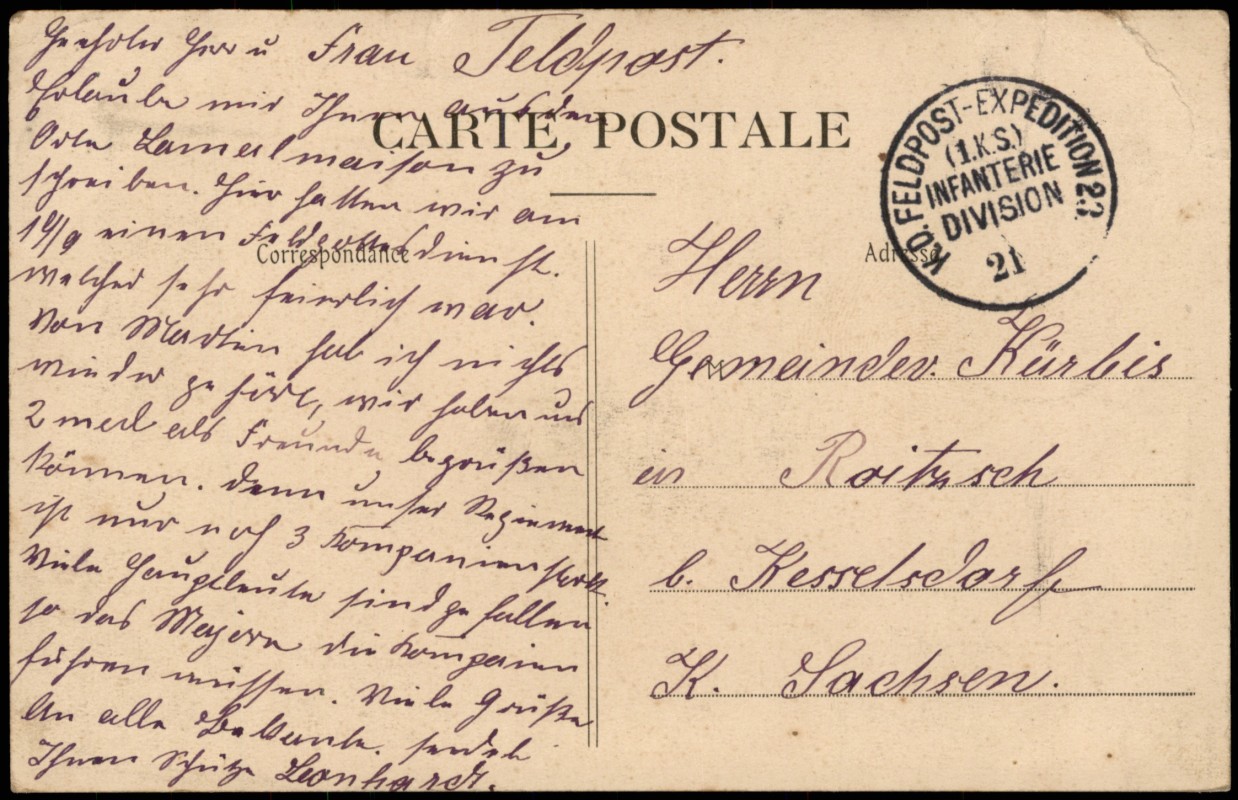 Geehrter Herr u Frau
Feldpost.
Erlaube mir Ihnen aus den
Orte Lamalmaison zu
schreiben. Hier hatten wir am
19/9 einen Feldgottesdienst.
welcher sehr feierlich war.
Von Martin hab ich nichts
wieder gehört, wir haben uns
2 mal als Freunde begrüßen
können. denn unser Regiment
ist nur noch 3 Kompanien stark.
Viele Hauptleute sind gefallen
so das Majore die Kompanien
führen müssen. Viele Grüße
An alle Bekante. sendet
Ihnen Schütze Leonhardt.
CARTE POSTALE
Correspondance
Adresse
K.D. FELDPOST-EXPEDITION
(1.K.S.)
INFANTERIE
DIVISION
21
Herrn
Gemeindev. Kürbis
in Roitzsch
b. Kesselsdorf
K. Sachsen.